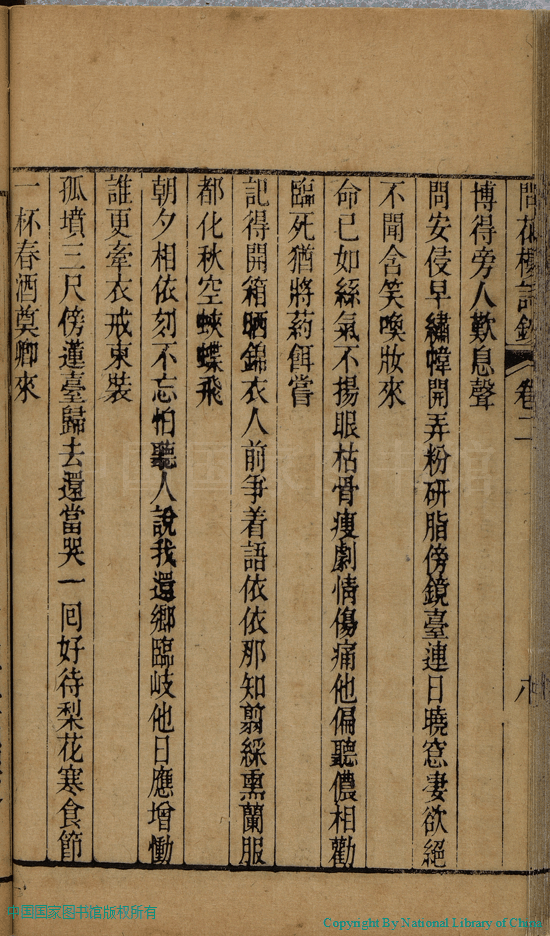 問花樓詩鈔 卷二 八
博得旁人歎息聲
問安侵早繡幃開弄粉研脂傍鏡臺連日曉窓凄欲絕
不聞含笑喚妝來
命已如絲氣不揚眼枯骨瘦劇情傷痛他偏聽儂相勸
臨死猶將葯餌嘗
記得開箱晒錦衣人前爭着語依依那知翦綵熏蘭服
都化秋空蛺蝶飛
朝夕相依刻不忘怕聽人說我還鄉臨岐他日應增慟
誰更牽衣戒束裝
孤墳三尺傍蓮臺歸去還當哭一回好待梨花寒食節
一杯春酒奠卿來
中国国家图书馆
中国国家图书馆版权所有
Copyright By National Library of China